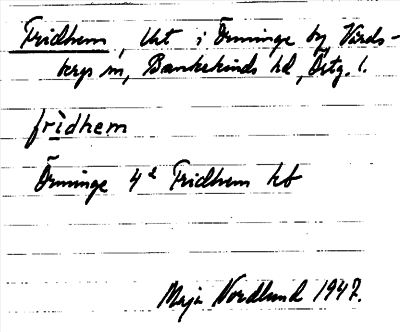 Fridhem, lht i Örminge by Vårds-
bergs sn, Bankekinds hd, Östg. l.
frìdhem
Örminge 4ᵈ Fridhem kb
Maja Nordlund 1947.